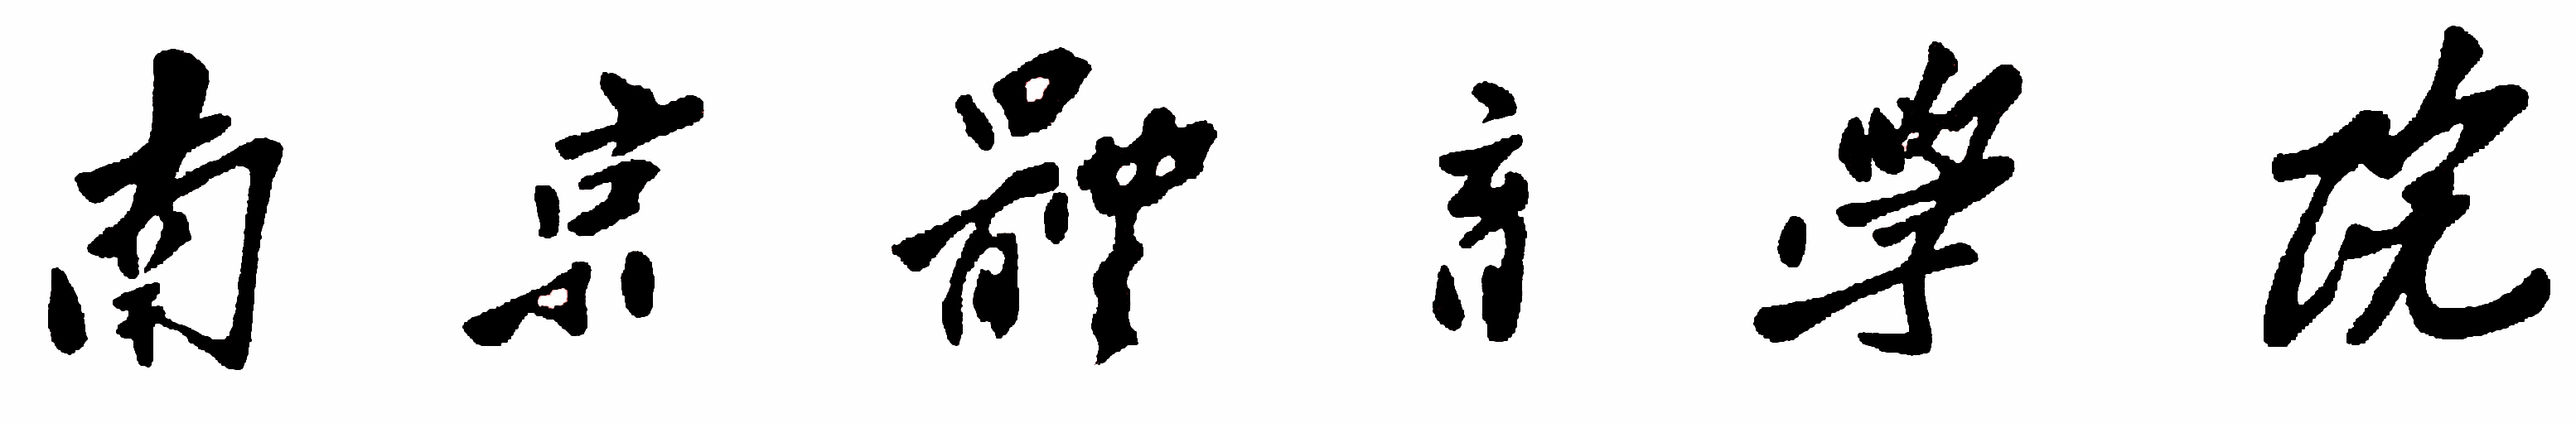 南京體育學院